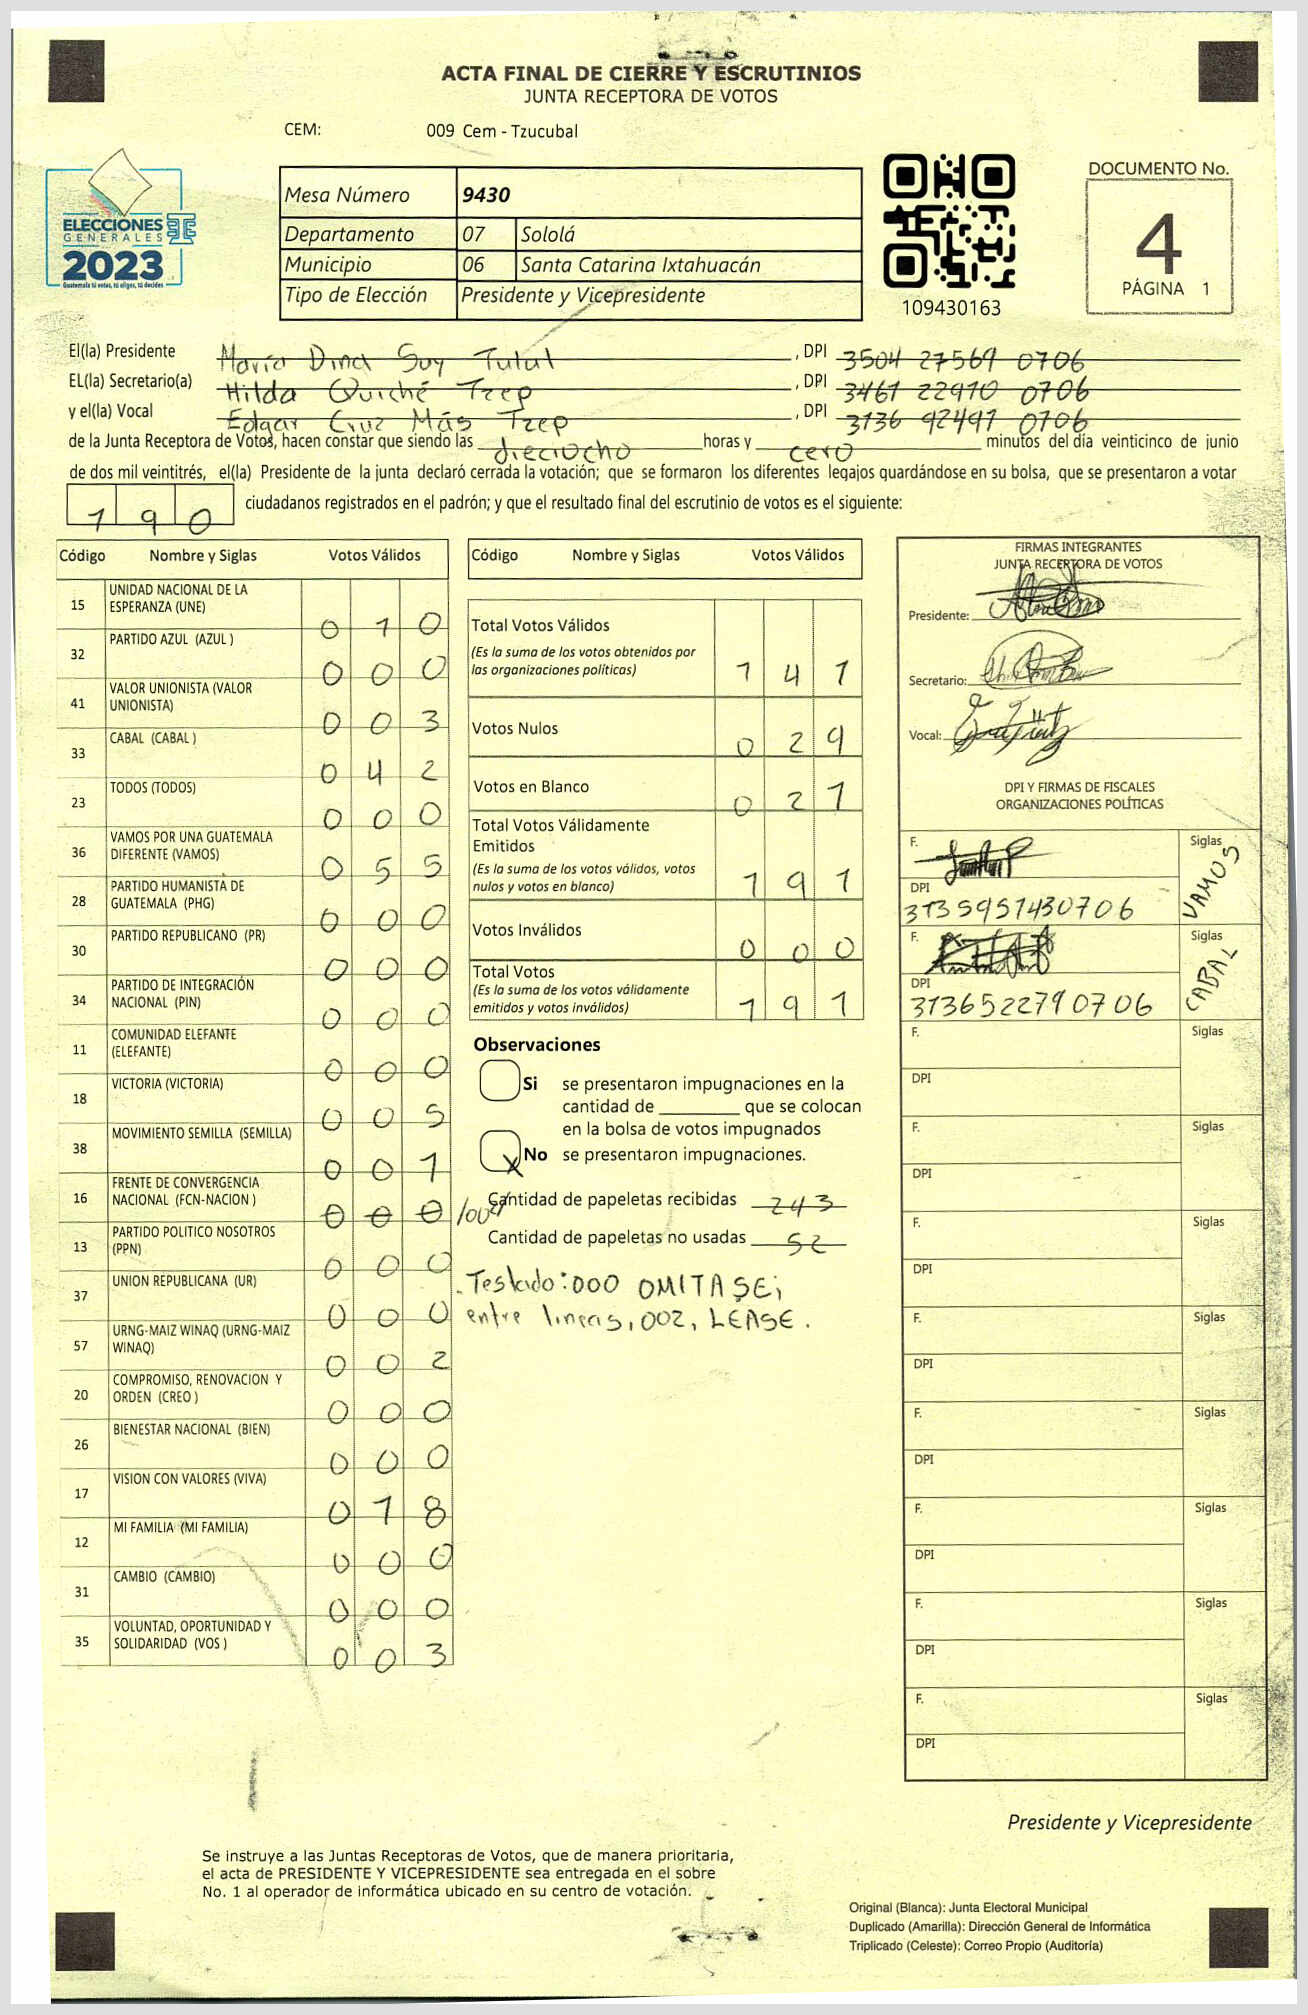 ACTA FINAL DE CIERRE Y ESCRUTINIOS
JUNTA RECEPTORA DE VOTOS
CEM: 009 Cem - Tzucubal
ELECCIONES
GENERALES
2023
Guatemala tú votas, tú eliges, tú decides
Mesa Número 9430
Departamento 07 Sololá
Municipio 06 Santa Catarina Ixtahuacán
Tipo de Elección Presidente y Vicepresidente
109430163
DOCUMENTO No.
4
PÁGINA 1
El(la) Presidente María Dina Suy Tulul , DPI 3504 27569 0706
EL(la) Secretario(a) Hilda Quiché Tzep , DPI 3461 22970 0706
y el(la) Vocal Edgar Cruz Más Tzep , DPI 3136 92497 0706
de la Junta Receptora de Votos, hacen constar que siendo las dieciocho horas y cero minutos del día veinticinco de junio
de dos mil veintitrés, el(la) Presidente de la junta declaró cerrada la votación; que se formaron los diferentes legajos quardándose en su bolsa, que se presentaron a votar
190 ciudadanos registrados en el padrón; y que el resultado final del escrutinio de votos es el siguiente:
Código Nombre y Siglas Votos Válidos
15 UNIDAD NACIONAL DE LA
ESPERANZA (UNE) 0 1 0
32 PARTIDO AZUL (AZUL ) 0 0 0
41 VALOR UNIONISTA (VALOR
UNIONISTA) 0 0 3
33 CABAL (CABAL ) 0 4 2
23 TODOS (TODOS) 0 0 0
36 VAMOS POR UNA GUATEMALA
DIFERENTE (VAMOS) 0 5 5
28 PARTIDO HUMANISTA DE
GUATEMALA (PHG) 0 0 0
30 PARTIDO REPUBLICANO (PR) 0 0 0
34 PARTIDO DE INTEGRACIÓN
NACIONAL (PIN) 0 0 0
11 COMUNIDAD ELEFANTE
(ELEFANTE) 0 0 0
18 VICTORIA (VICTORIA) 0 0 5
38 MOVIMIENTO SEMILLA (SEMILLA) 0 0 1
16 FRENTE DE CONVERGENCIA
NACIONAL (FCN-NACION ) 0 0 0
13 PARTIDO POLITICO NOSOTROS
(PPN) 0 0 0
37 UNION REPUBLICANA (UR) 0 0 0
57 URNG-MAIZ WINAQ (URNG-MAIZ
WINAQ) 0 0 2
20 COMPROMISO, RENOVACION Y
ORDEN (CREO ) 0 0 0
26 BIENESTAR NACIONAL (BIEN) 0 0 0
17 VISION CON VALORES (VIVA) 0 1 8
12 MI FAMILIA (MI FAMILIA) 0 0 0
31 CAMBIO (CAMBIO) 0 0 0
35 VOLUNTAD, OPORTUNIDAD Y
SOLIDARIDAD (VOS ) 0 0 3
Código Nombre y Siglas Votos Válidos
Total Votos Válidos
(Es la suma de los votos obtenidos por
las organizaciones políticas) 1 4 1
Votos Nulos 0 2 9
Votos en Blanco 0 2 1
Total Votos Válidamente
Emitidos
(Es la suma de los votos válidos, votos
nulos y votos en blanco) 1 9 1
Votos Inválidos 0 0 0
Total Votos
(Es la suma de los votos válidamente
emitidos y votos inválidos) 1 9 1
Observaciones
Si se presentaron impugnaciones en la
cantidad de ________ que se colocan
en la bolsa de votos impugnados
X No se presentaron impugnaciones.
Cantidad de papeletas recibidas 243
Cantidad de papeletas no usadas 52
Testado: 000 OMITASE;
entre lineas, 002, LEASE.
FIRMAS INTEGRANTES
JUNTA RECEPTORA DE VOTOS
Presidente:
Secretario:
Vocal:
DPI Y FIRMAS DE FISCALES
ORGANIZACIONES POLÍTICAS
F. Siglas VAMOS
DPI
3135951430706
F. Siglas CABAL
DPI
3136522790706
F. Siglas
DPI
F. Siglas
DPI
F. Siglas
DPI
F. Siglas
DPI
F. Siglas
DPI
F. Siglas
DPI
F. Siglas
DPI
F. Siglas
DPI
Presidente y Vicepresidente
Se instruye a las Juntas Receptoras de Votos, que de manera prioritaria,
el acta de PRESIDENTE Y VICEPRESIDENTE sea entregada en el sobre
No. 1 al operador de informática ubicado en su centro de votación.
Original (Blanca): Junta Electoral Municipal
Duplicado (Amarilla): Dirección General de Informática
Triplicado (Celeste): Correo Propio (Auditoría)